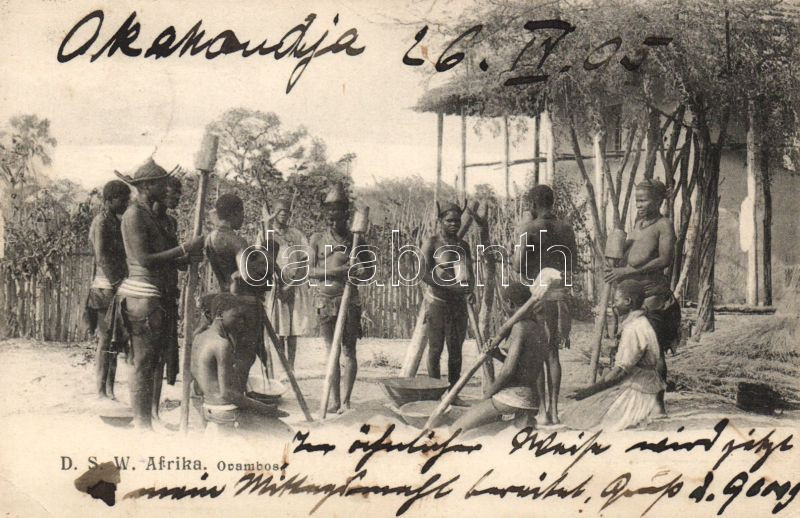 Okahandja 26. IV. 05.
darabanth.com
D. S. W. Afrika. Ovambos.
In ähnlicher Weise wird jetzt
mein Mittagsmahl bereitet, Gruß d. Georg